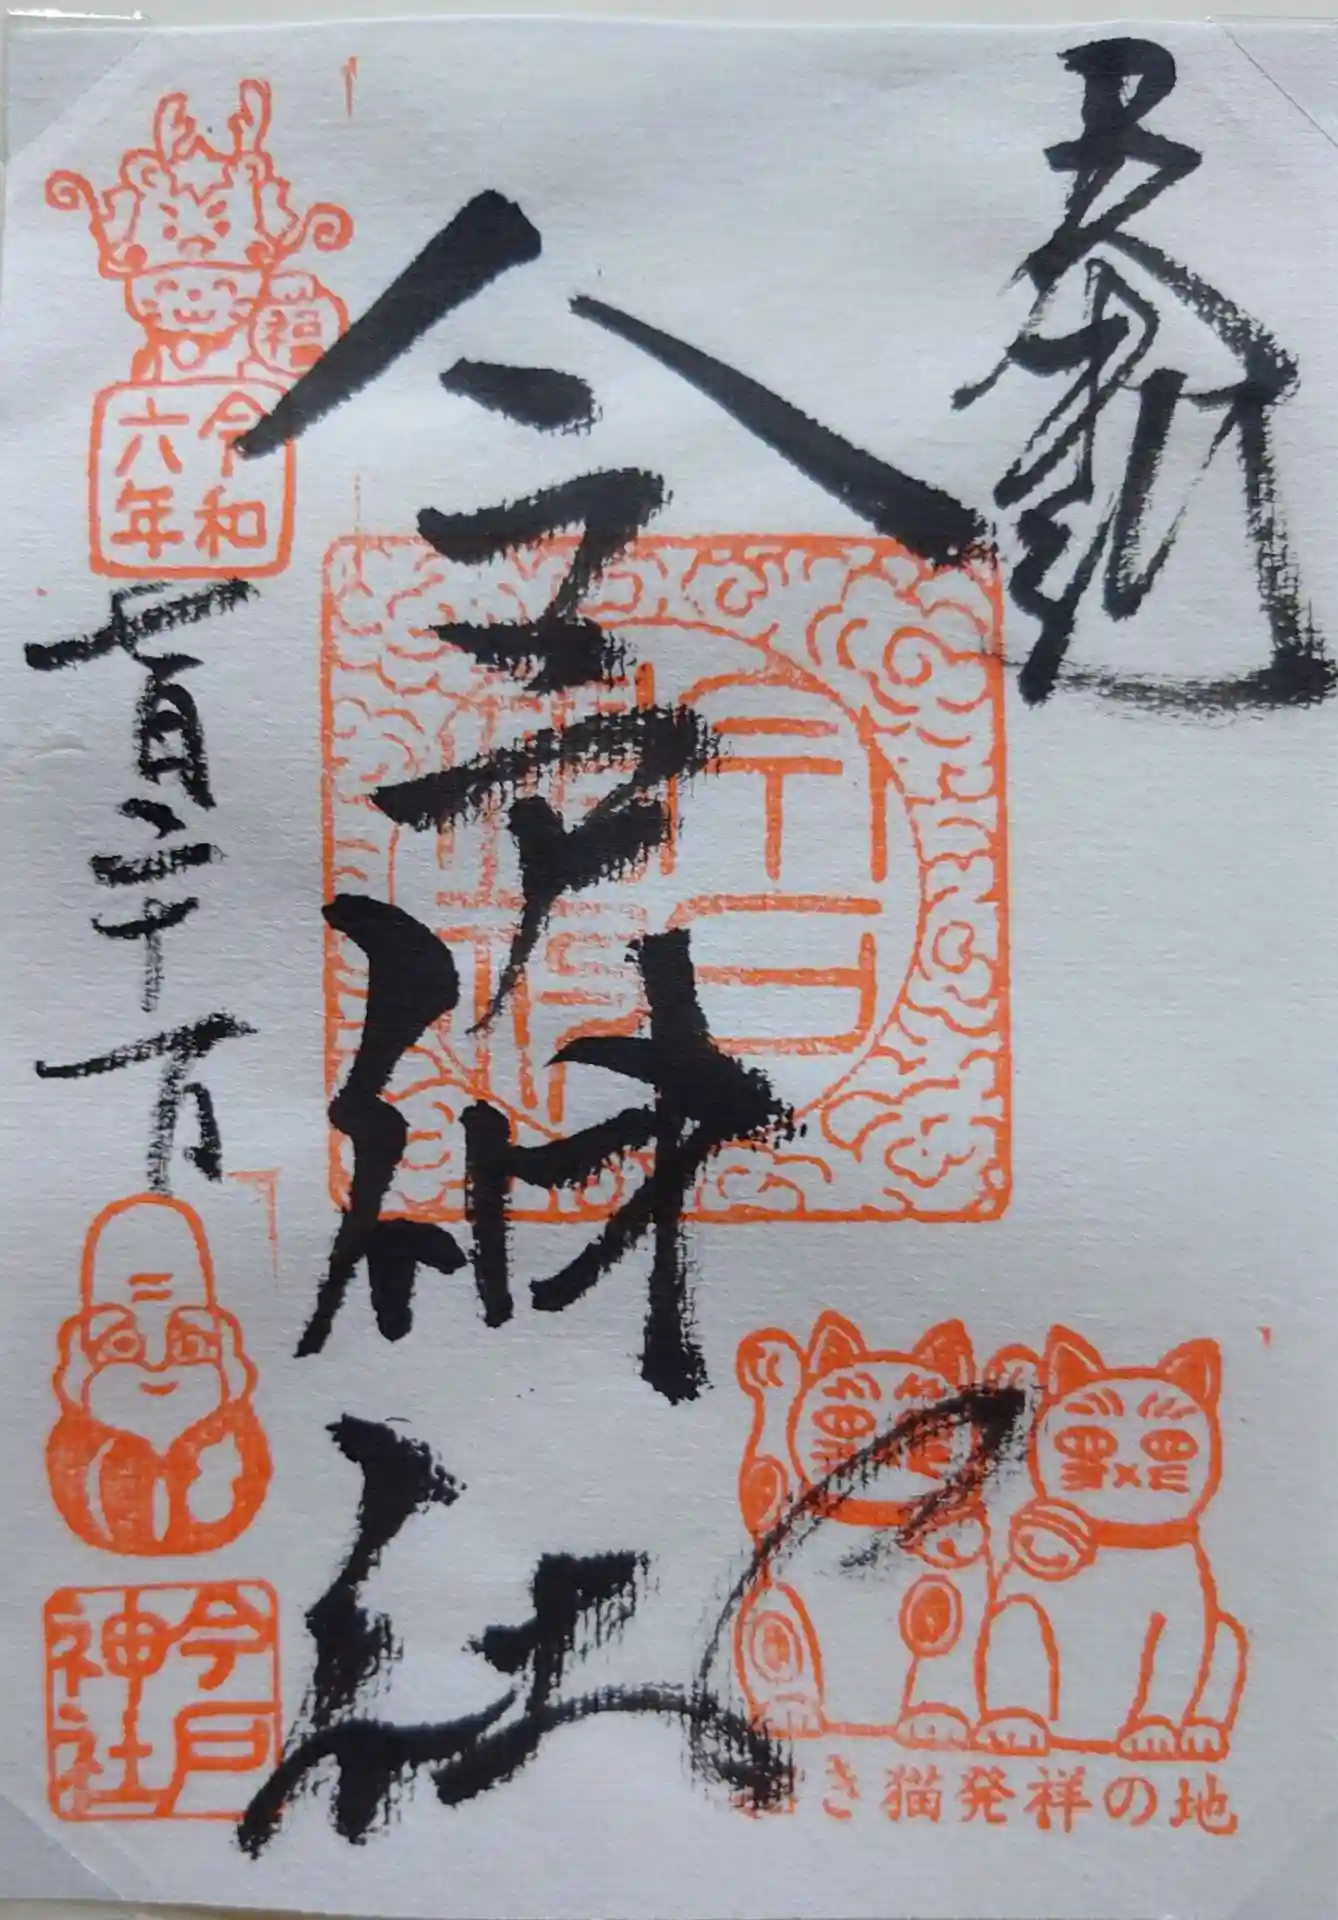 奉拝
今戸神社
福
令和
六年
七月二十一日
今戸
神社
招き猫発祥の地